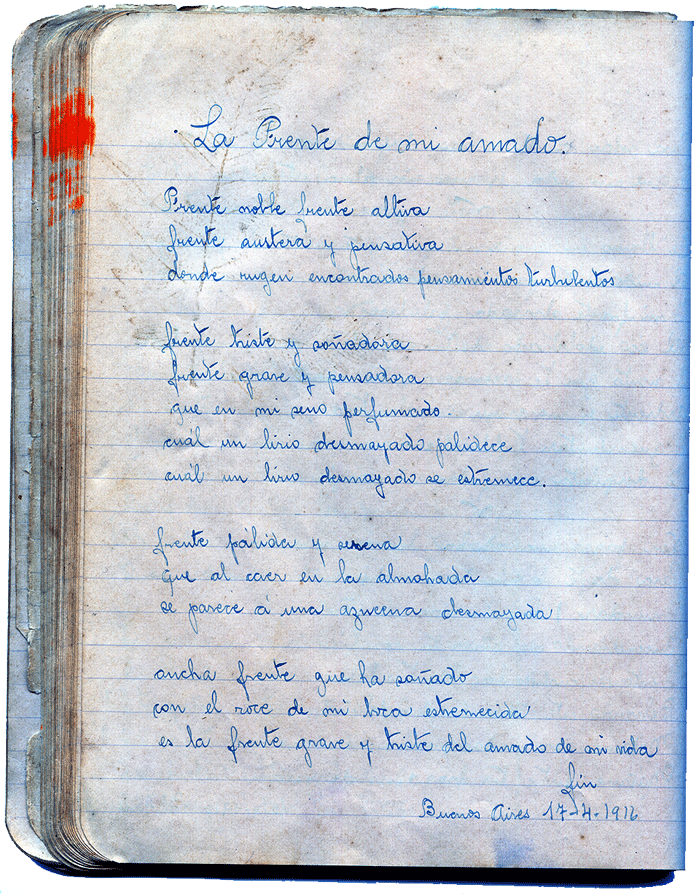 La Frente de mi amado.
Frente noble frente altiva
frente austera y pensativa
donde rugen encontrados pensamientos turbulentos
frente triste y soñadora
frente grave y pensadora
que en mi seno perfumado.
cuál un lirio desmayado palidece
cuál un lirio desmayado se estremece.
frente pálida y serena
que al caer en la almohada
se parece á una azucena desmayada
ancha frente que ha soñado
con el roce de mi boca estremecida
es la frente grave y triste del amado de mi vida
fin
Buenos Aires 17-4-1916